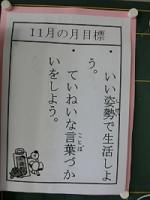 11月の月目標
・いい姿勢で生活しよ
う。
・ていねいな言葉づか
ことば
いをしよう。